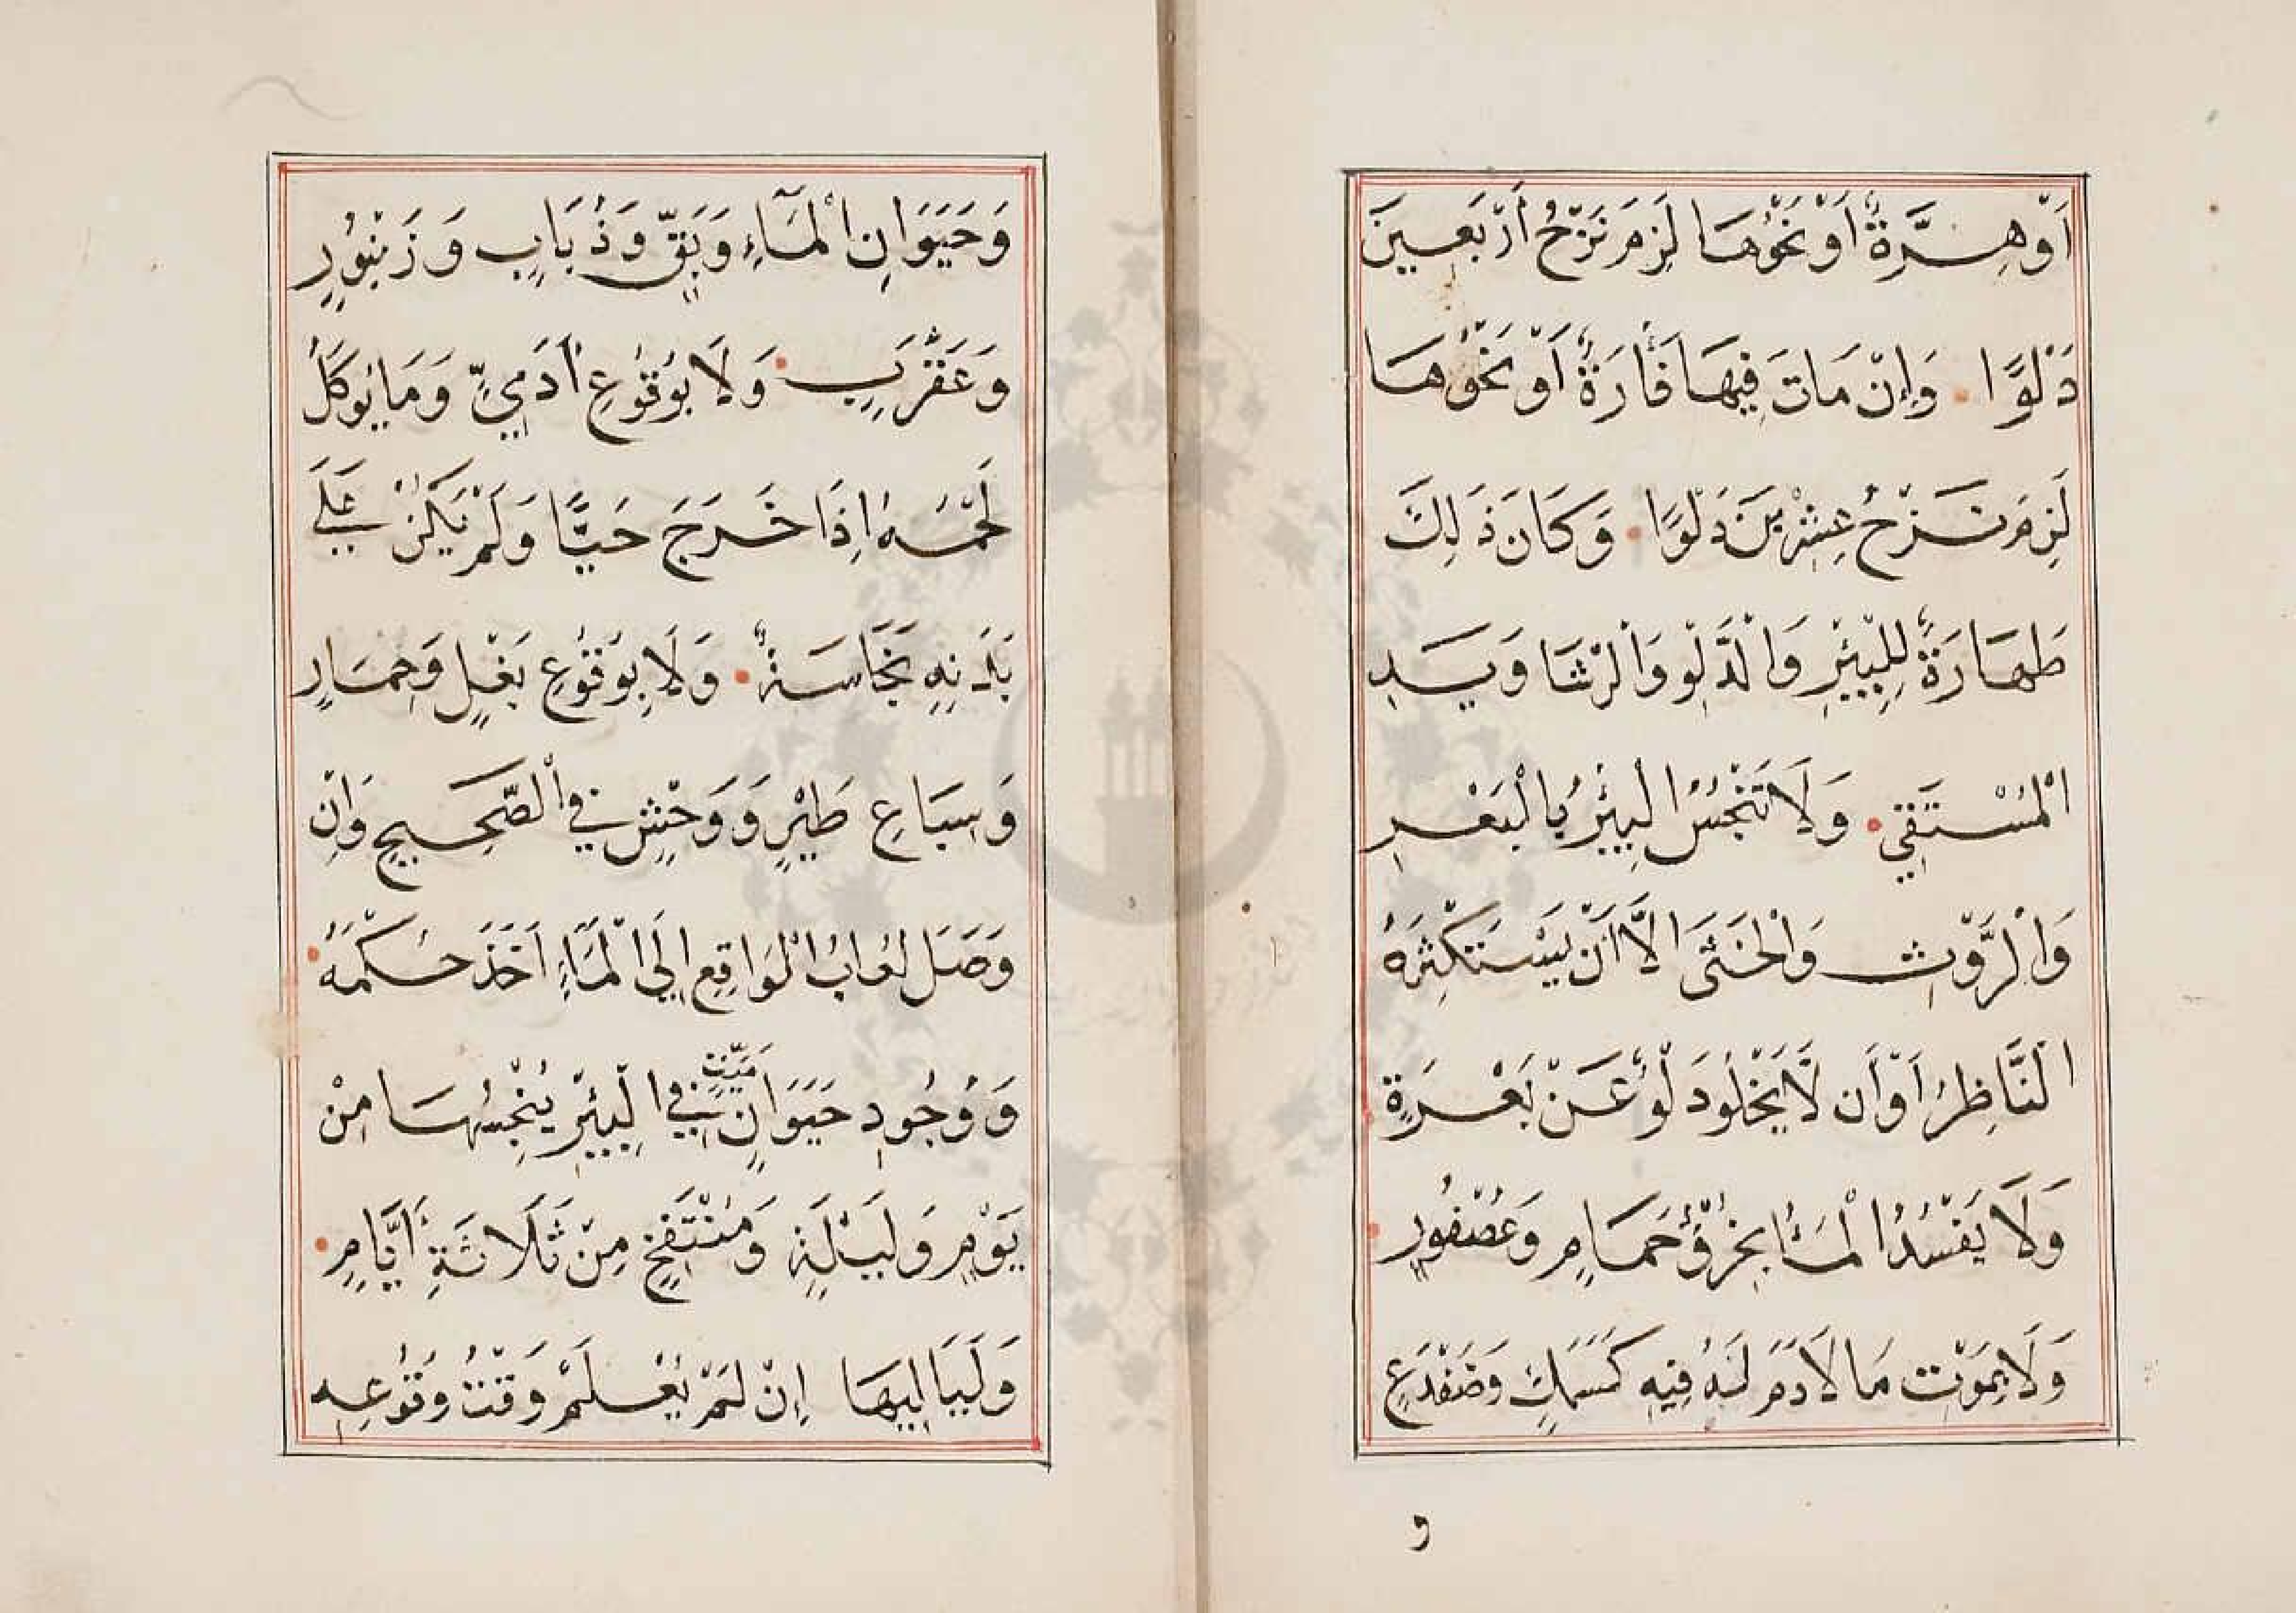 اَوْ هِرَّةٌ أَوْ نَحْوُهَا لَزِمَ نَزْحُ أَرْبَعِينَ
دَلْوًا. وَإِنْ مَاتَ فِيهَا فَأْرَةٌ أَوْ نَحْوُهَا
لَزِمَ نَزْحُ عِشْرِينَ دَلْوًا. وَكَانَ ذَلِكَ
طَهَارَةً لِلْبِيْرِ وَالْدَّلْوِ وَالْرِّشَا وَيَدِ
الْمُسْتَقِي. وَلَا تَنْجُسُ الْبِيْرُ بِالْبَعْرِ
وَالْرَّوْثِ وَالْخَثَى اِلَّا أَنْ يَسْتَكْثِرَهُ
الْنَّاظِرُ اَوْ أَن لَّا يَخْلُوَ دَلْوٌ عَنْ بَعْرَةٍ
وَلَا يَفْسُدُ الْمَأُ بِخُرْؤِ حَمَامٍ وَعُصْفُورٍ
وَلَا بِمَوْتِ مَا لَا دَمَ لَهُ فِيهِ كَسَمَكٍ وَضَفْدَعٍ
و
وَحَيَوَانِ الْمَآءِ وَبَقٍّ وَذُبَابٍ وَزَنْبُورٍ
وَعَقْرَبٍ. وَلَا بِوُقُوعِ اٰدَمِيٍّ وَمَا يُوكَلُ
لَحْمُهُ اِذَا خَرَجَ حَيًّا وَلَمْ يَكُنْ عَلَى
بَدَنِهِ نَجَاسَةٌ. وَلَا بِوُقُوعِ بَغْلٍ وَحِمَارٍ
وَسِبَاعِ طَيْرٍ وَوَحْشٍ فِي الْصَّحِيحِ وَاِنْ
وَصَلَ لُعَابُ الْوَاقِعِ اِلَى الْمَاءِ اَخَذَ حُكْمَهُ.
وَوُجُودِ حَيَوَانٍ مَيِّتٍ فِي الْبِيْرِ يُنَجِّسُهَا مِنْ
يَوْمٍ وَلَيْلَةٍ وَمُنْتَفِخٍ مِنْ ثَلَاثَةِ أَيَّامٍ.
وَلَيَالِيهَا إِنْ لَمْ يُعْلَمْ وَقْتُ وُقُوعِهِ